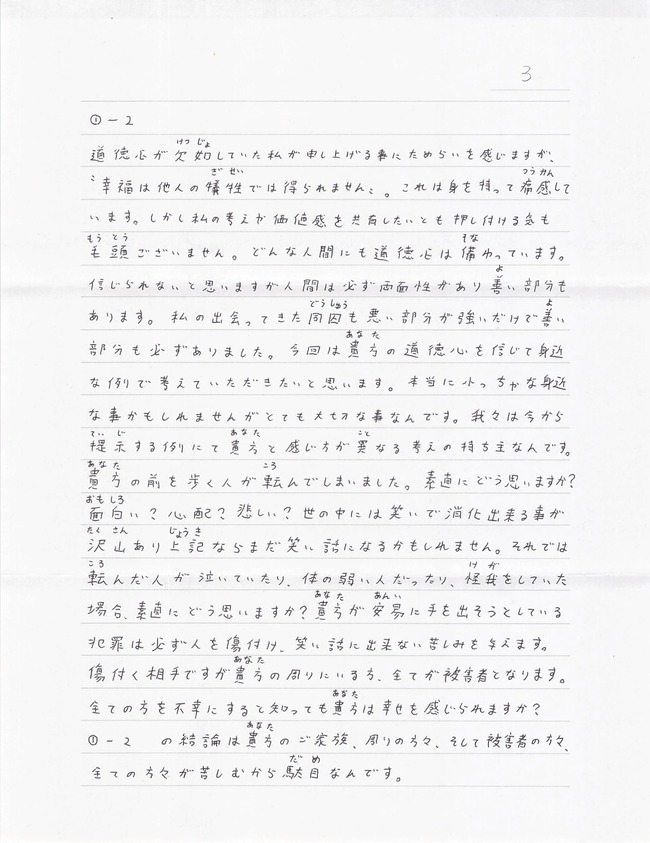 3
①-2
道徳心が欠如していた私が申し上げる事にためらいを感じますが、
"幸福は他人の犠牲では得られません"。これは身を持って痛感して
います。しかし私の考えや価値感を共有したいとも押し付ける気も
毛頭ございません。どんな人間にも道徳心は備わっています。
信じられないと思いますが人間は必ず両面性があり善い部分も
あります。私の出会ってきた同囚も悪い部分が強いだけで善い
部分も必ずありました。今回は貴方の道徳心を信じて身近
な例で考えていただきたいと思います。本当に小っちゃな身近
な事かもしれませんがとても大切な事なんです。我々は今から
提示する例にて貴方と感じ方が異なる考えの持ち主なんです。
貴方の前を歩く人が転んでしまいました。素直にどう思いますか?
面白い?心配?悲しい?世の中には笑いで消化出来る事が
沢山あり上記ならまだ笑い話になるかもしれません。それでは
転んだ人が泣いていたり、体の弱い人だったり、怪我をしていた
場合、素直にどう思いますか?貴方が安易に手を出そうとしている
犯罪は必ず人を傷付け、笑い話に出来ない苦しみを与えます。
傷付く相手ですが貴方の周りにいる方、全てが被害者となります。
全ての方を不幸にすると知っても貴方は幸せを感じられますか?
①-2 の結論は貴方のご家族、周りの方々、そして被害者の方々、
全ての方々が苦しむから駄目なんです。